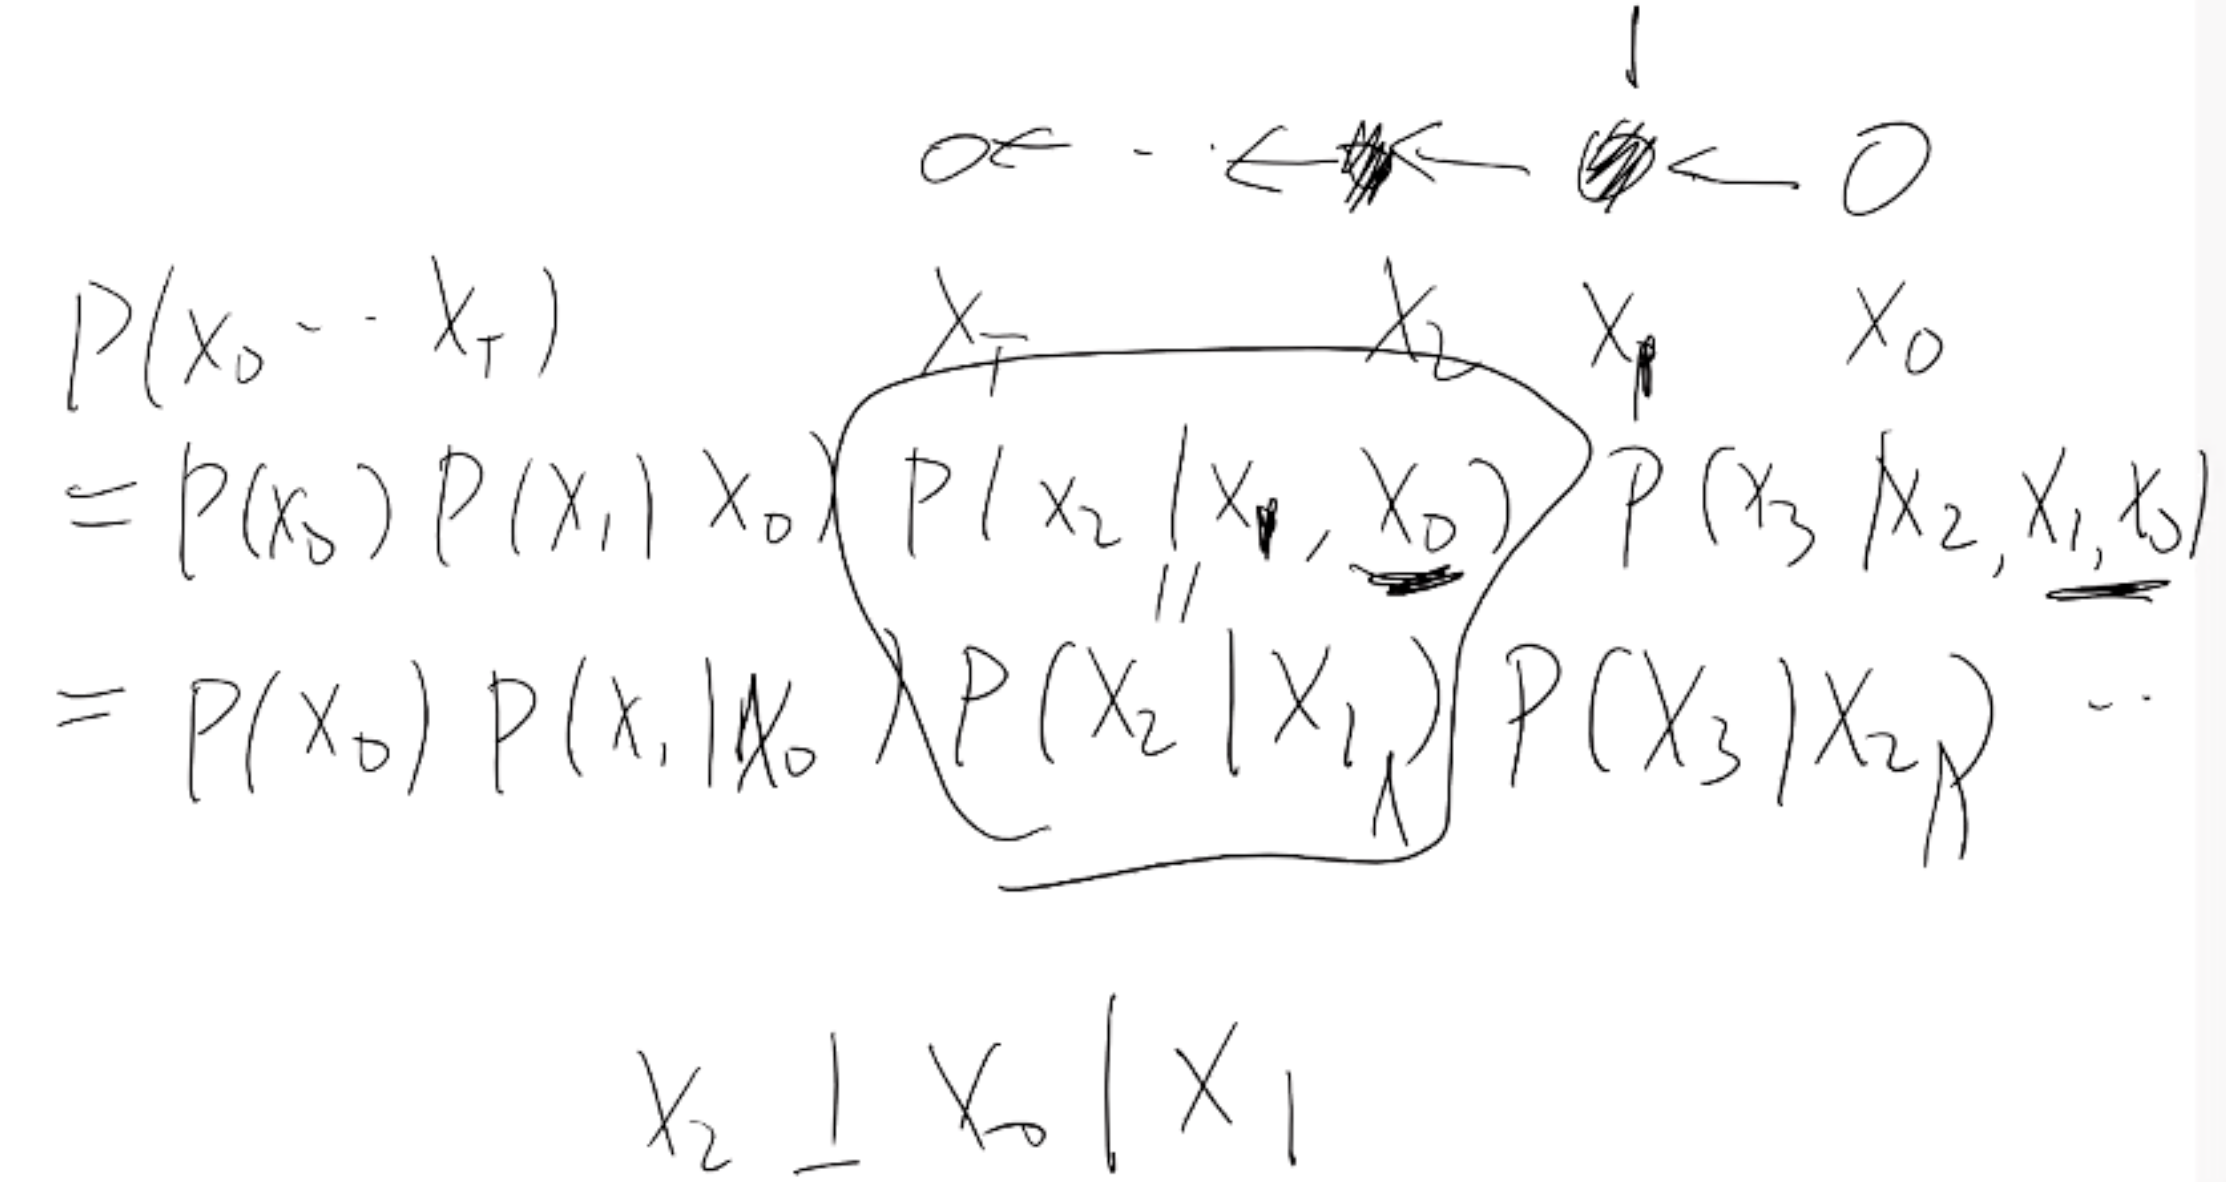 X_T X_2 X_1 X_0
P(X_0 -- X_T)
= P(X_0) P(X_1 | X_0) P(X_2 | X_1, X_0) P(X_3 | X_2, X_1, X_0)
=
= P(X_0) P(X_1 | X_0) P(X_2 | X_1) P(X_3 | X_2) --
X_2 ⊥ X_0 | X_1